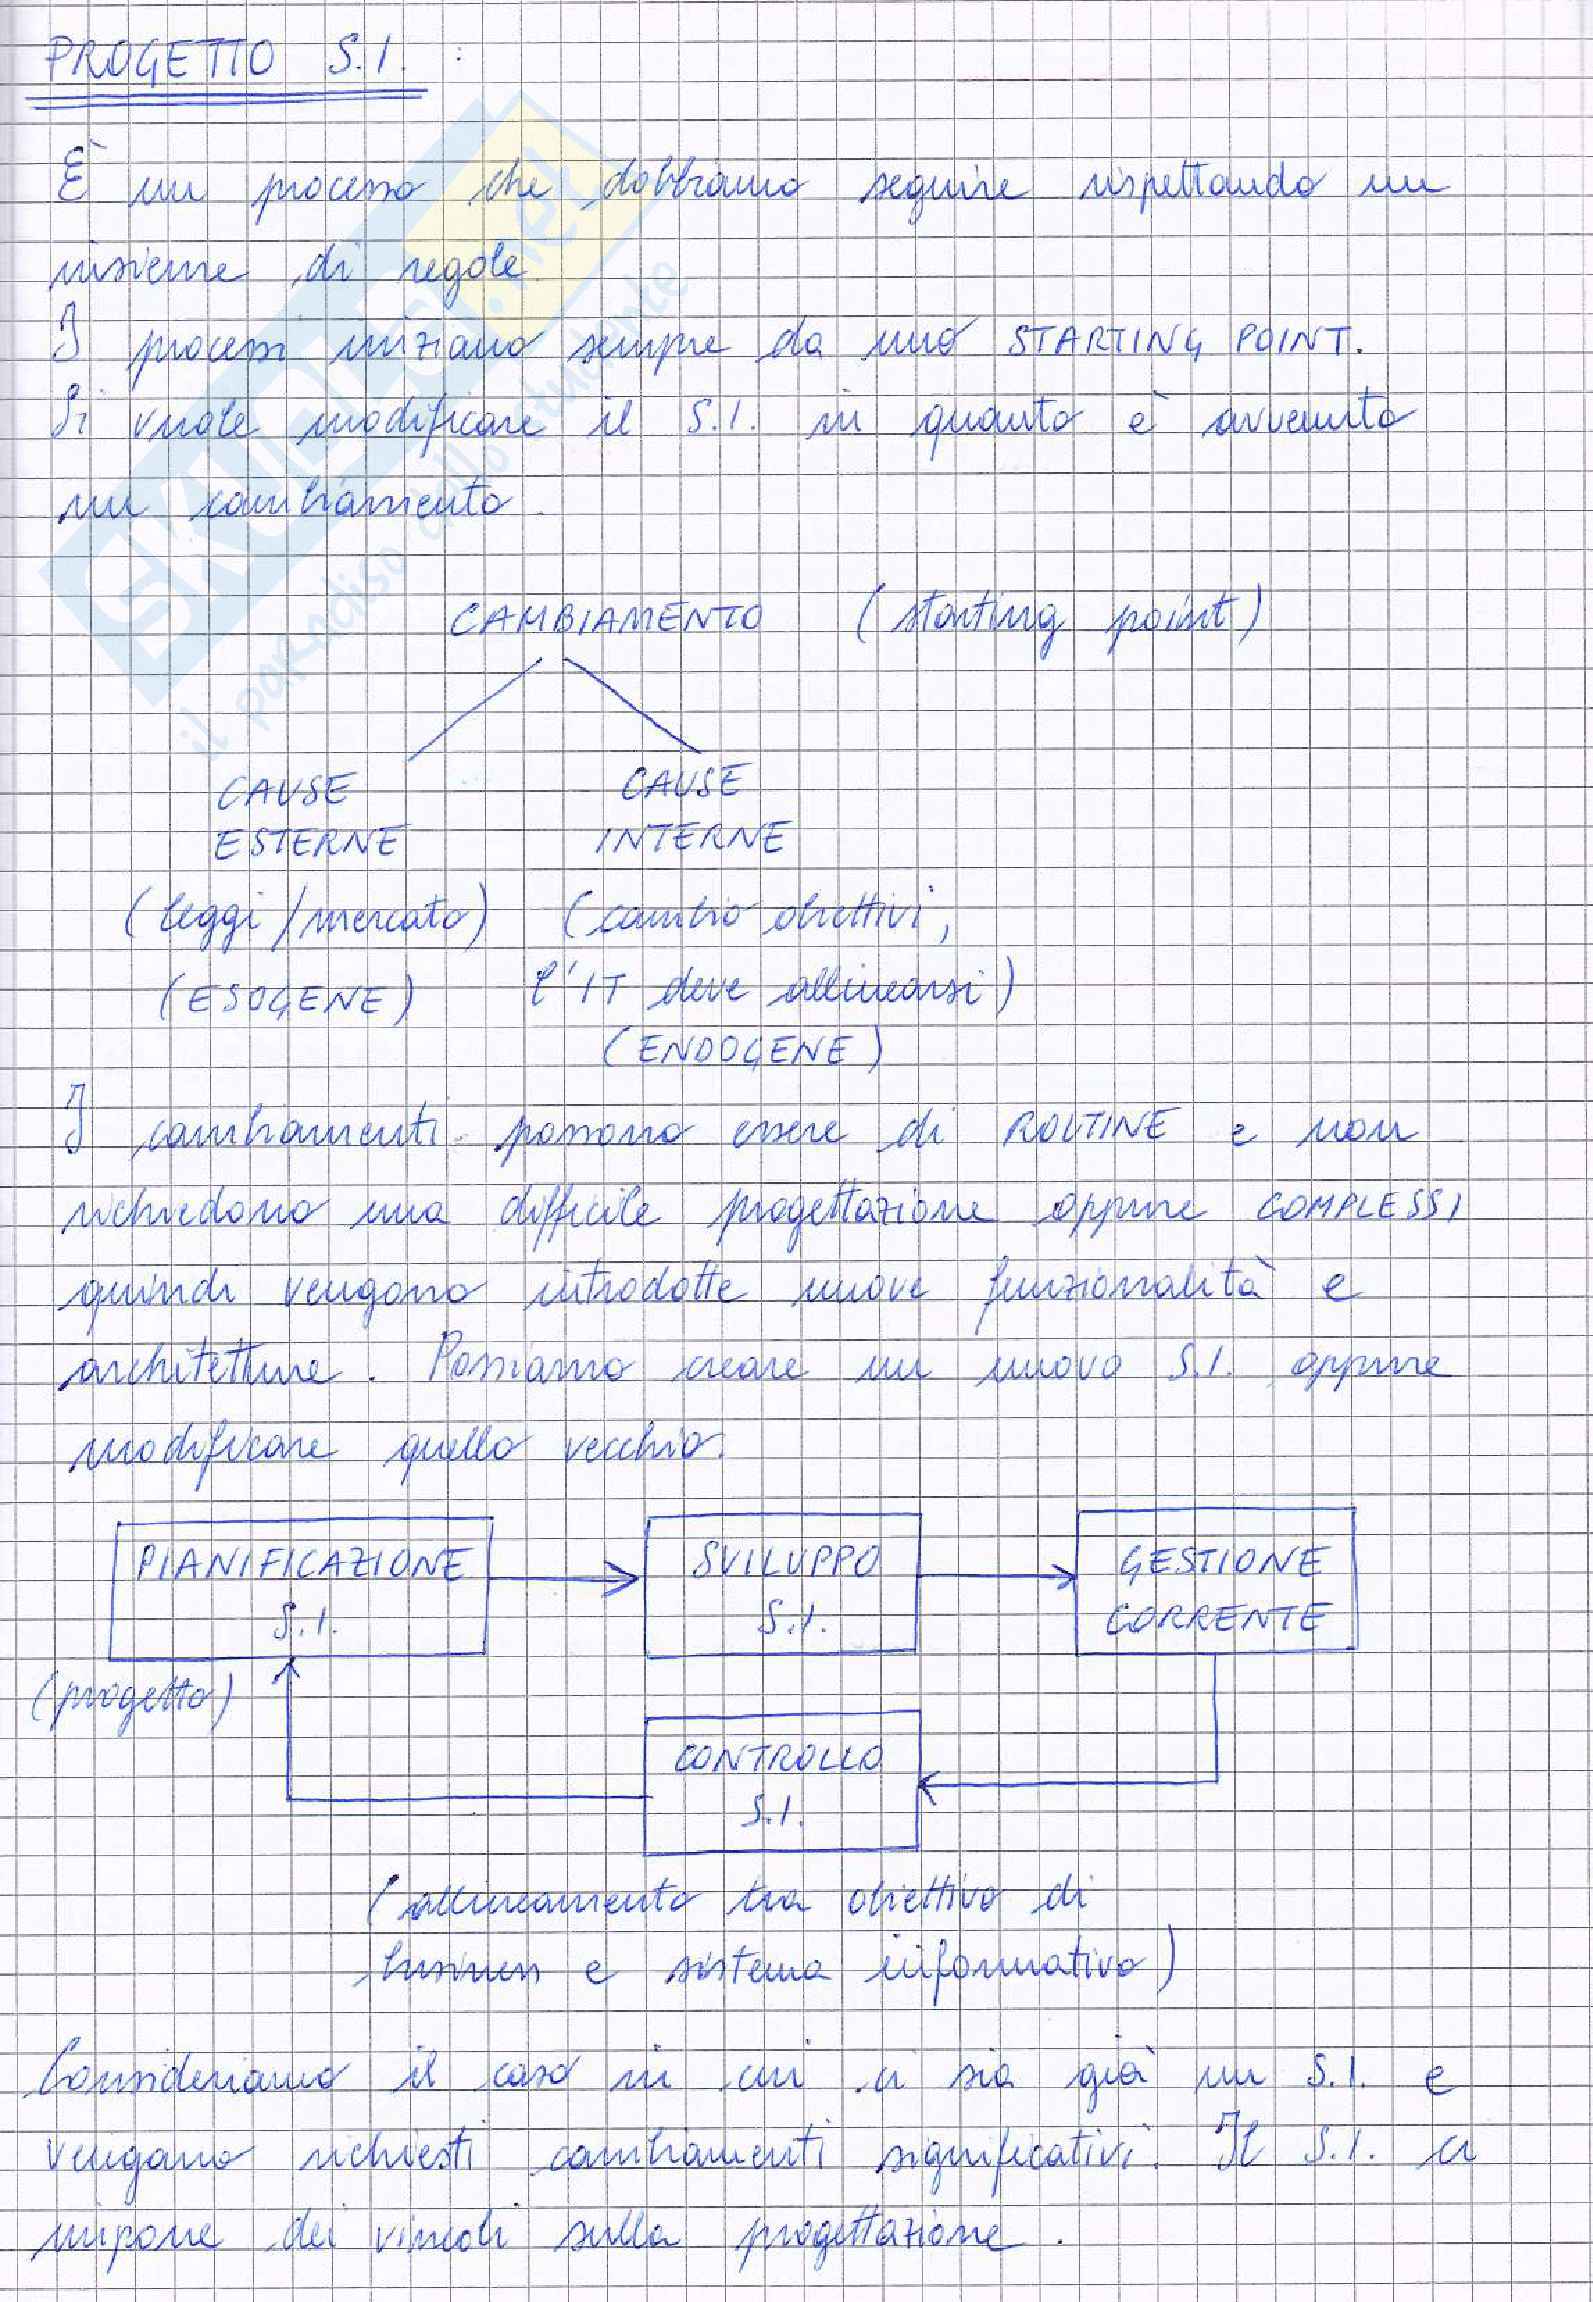 PROGETTO S.I. :
È un processo che dobbiamo seguire rispettando un
insieme di regole.
I processi iniziano sempre da uno STARTING POINT.
Si vuole modificare il S.I. in quanto è avvenuto
un cambiamento.
CAMBIAMENTO (starting point)
CAUSE ESTERNE
CAUSE INTERNE
(leggi/mercato) (cambio obiettivi,
(ESOGENE) l'IT deve allinearsi)
(ENDOGENE)
I cambiamenti possono essere di ROUTINE e non
richiedono una difficile progettazione oppure COMPLESSI
quindi vengono introdotte nuove funzionalità e
architetture. Possiamo creare un nuovo S.I. oppure
modificare quello vecchio.
PIANIFICAZIONE
S.I.
SVILUPPO
S.I.
GESTIONE
CORRENTE
(progetto)
CONTROLLO
S.I.
(allineamento tra obiettivo di
business e sistema informativo)
Consideriamo il caso in cui ci sia già un S.I. e
vengano richiesti cambiamenti significativi. Il S.I. ci
impone dei vincoli sulla progettazione.
SKUOLA.net
il paradiso dello studente